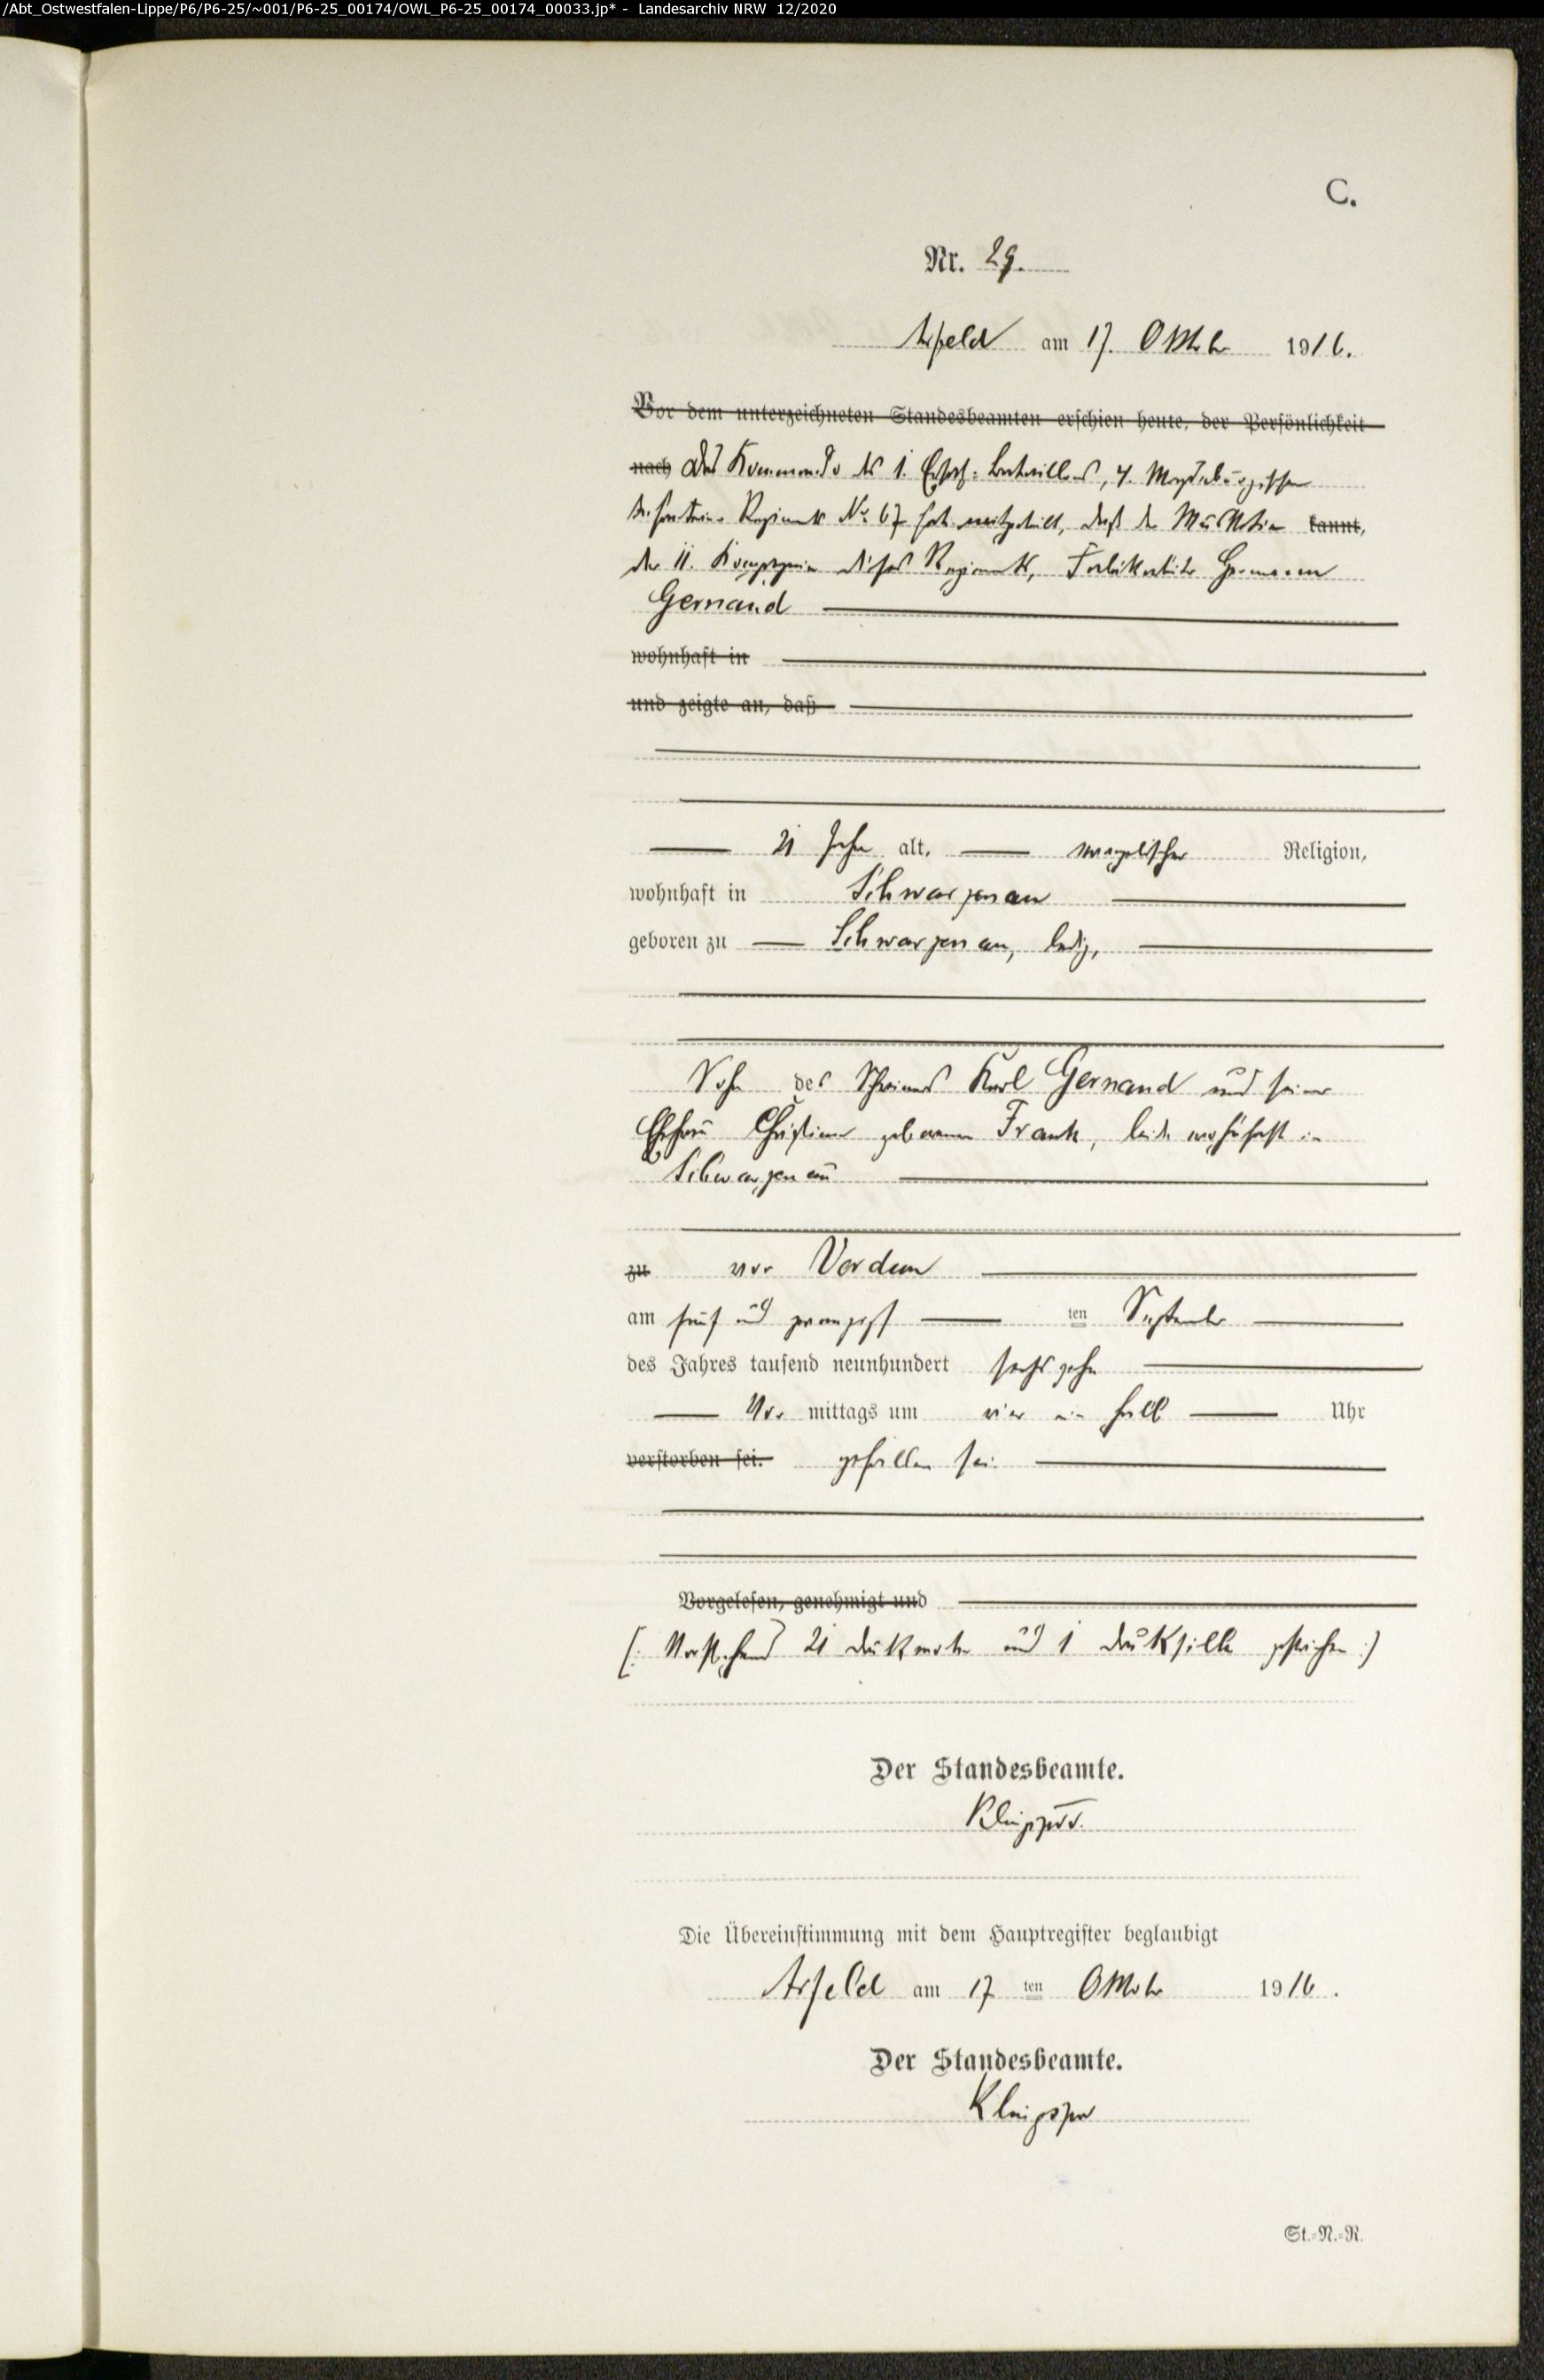 /Abt_Ostwestfalen-Lippe/P6/P6-25/~001/P6-25_00174/OWL_P6-25_00174_00033.jp* - Landesarchiv NRW 12/2020
C.
Nr. 29.
Arfeld am 17. Oktober 1916.
Vor dem unterzeichneten Standesbeamten erschien heute, der Persönlichkeit
nach Das Kommando des 1. Ersatz-Bataillons, 4. Magdeburgischen
Infanterie Regiments No 67 hat mitgeteilt, daß der Musketier kannt,
der 11. Kompagnie dieses Regiments, Fabrikarbeiter Hermann
Gernand
wohnhaft in
und zeigte an, daß
21 Jahre alt, evangelischer Religion,
wohnhaft in Schwarzenau
geboren zu Schwarzenau, ledig,
Sohn des Schreiners Karl Gernand und seiner
Ehefrau Christiane geborenen Frank, beide wohnhaft in
Schwarzenau
zu vor Verdun
am fünf und zwanzigst ten September
des Jahres tausend neunhundert sechszehn
Vor mittags um vier ein halb Uhr
verstorben sei. gefallen sei.
Vorgelesen, genehmigt und
(: Vorstehend 21 Druckworte und 1 Drucksilbe gestrichen :)
Der Standesbeamte.
Klingspor.
Die Übereinstimmung mit dem Hauptregister beglaubigt
Arfeld am 17 ten Oktober 1916.
Der Standesbeamte.
Klingspor
St.-N.-R.